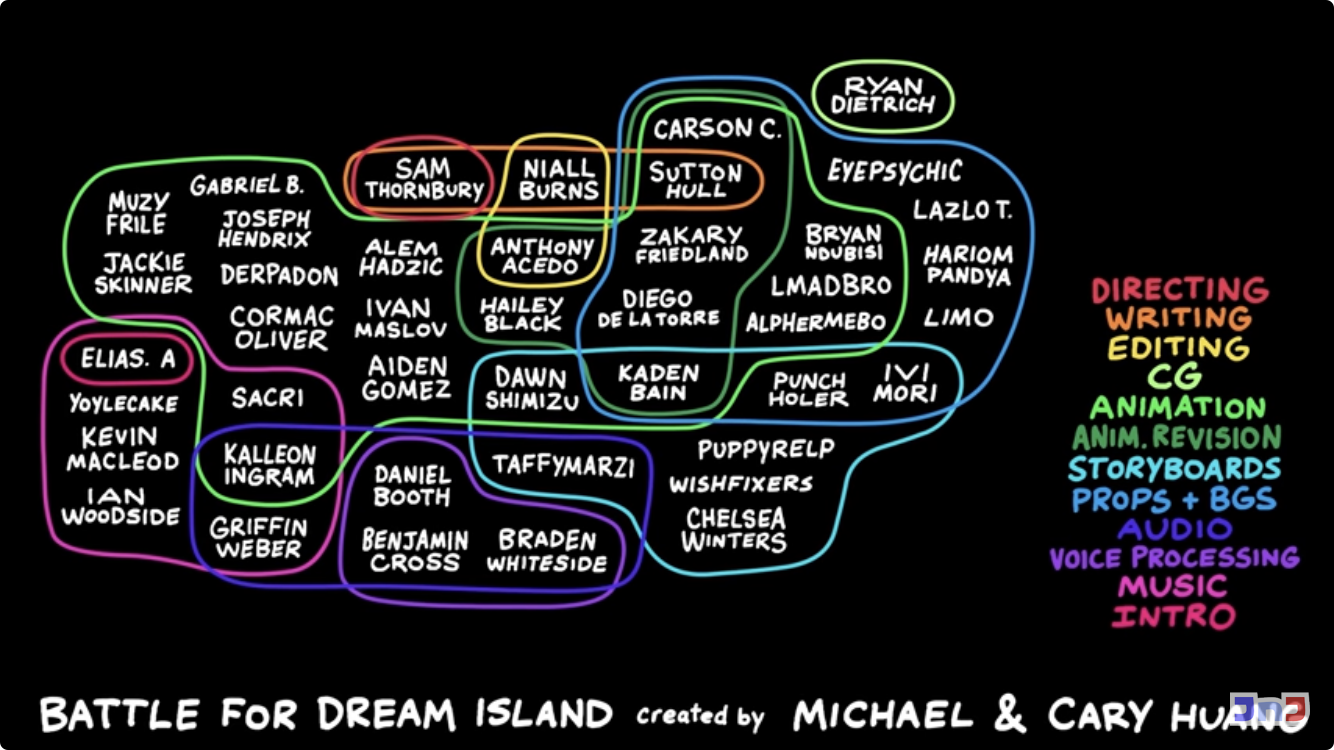 RYAN
DIETRICH
CARSON C.
SAM
THORNBURY
NIALL
BURNS
SUTTON
HULL
EYEPSYCHIC
GABRIEL B.
MUZY
FRILE
JOSEPH
HENDRIX
LAZLO T.
ALEM
HADZIC
ANTHONY
ACEDO
ZAKARY
FRIEDLAND
BRYAN
NDUBISI
HARIOM
PANDYA
JACKIE
SKINNER
DERPADON
LMADBRO
IVAN
MASLOV
HAILEY
BLACK
DIEGO
DE LA TORRE
ALPHERMEBO
LIMO
CORMAC
OLIVER
ELIAS. A
AIDEN
GOMEZ
DAWN
SHIMIZU
KADEN
BAIN
PUNCH
HOLER
IVI
MORI
YOYLECAKE
SACRI
KEVIN
MACLEOD
KALLEON
INGRAM
DANIEL
BOOTH
TAFFYMARZI
PUPPYRELP
WISHFIXERS
IAN
WOODSIDE
GRIFFIN
WEBER
BENJAMIN
CROSS
BRADEN
WHITESIDE
CHELSEA
WINTERS
DIRECTING
WRITING
EDITING
CG
ANIMATION
ANIM. REVISION
STORYBOARDS
PROPS + BGS
AUDIO
VOICE PROCESSING
MUSIC
INTRO
BATTLE FOR DREAM ISLAND created by MICHAEL & CARY HUANG